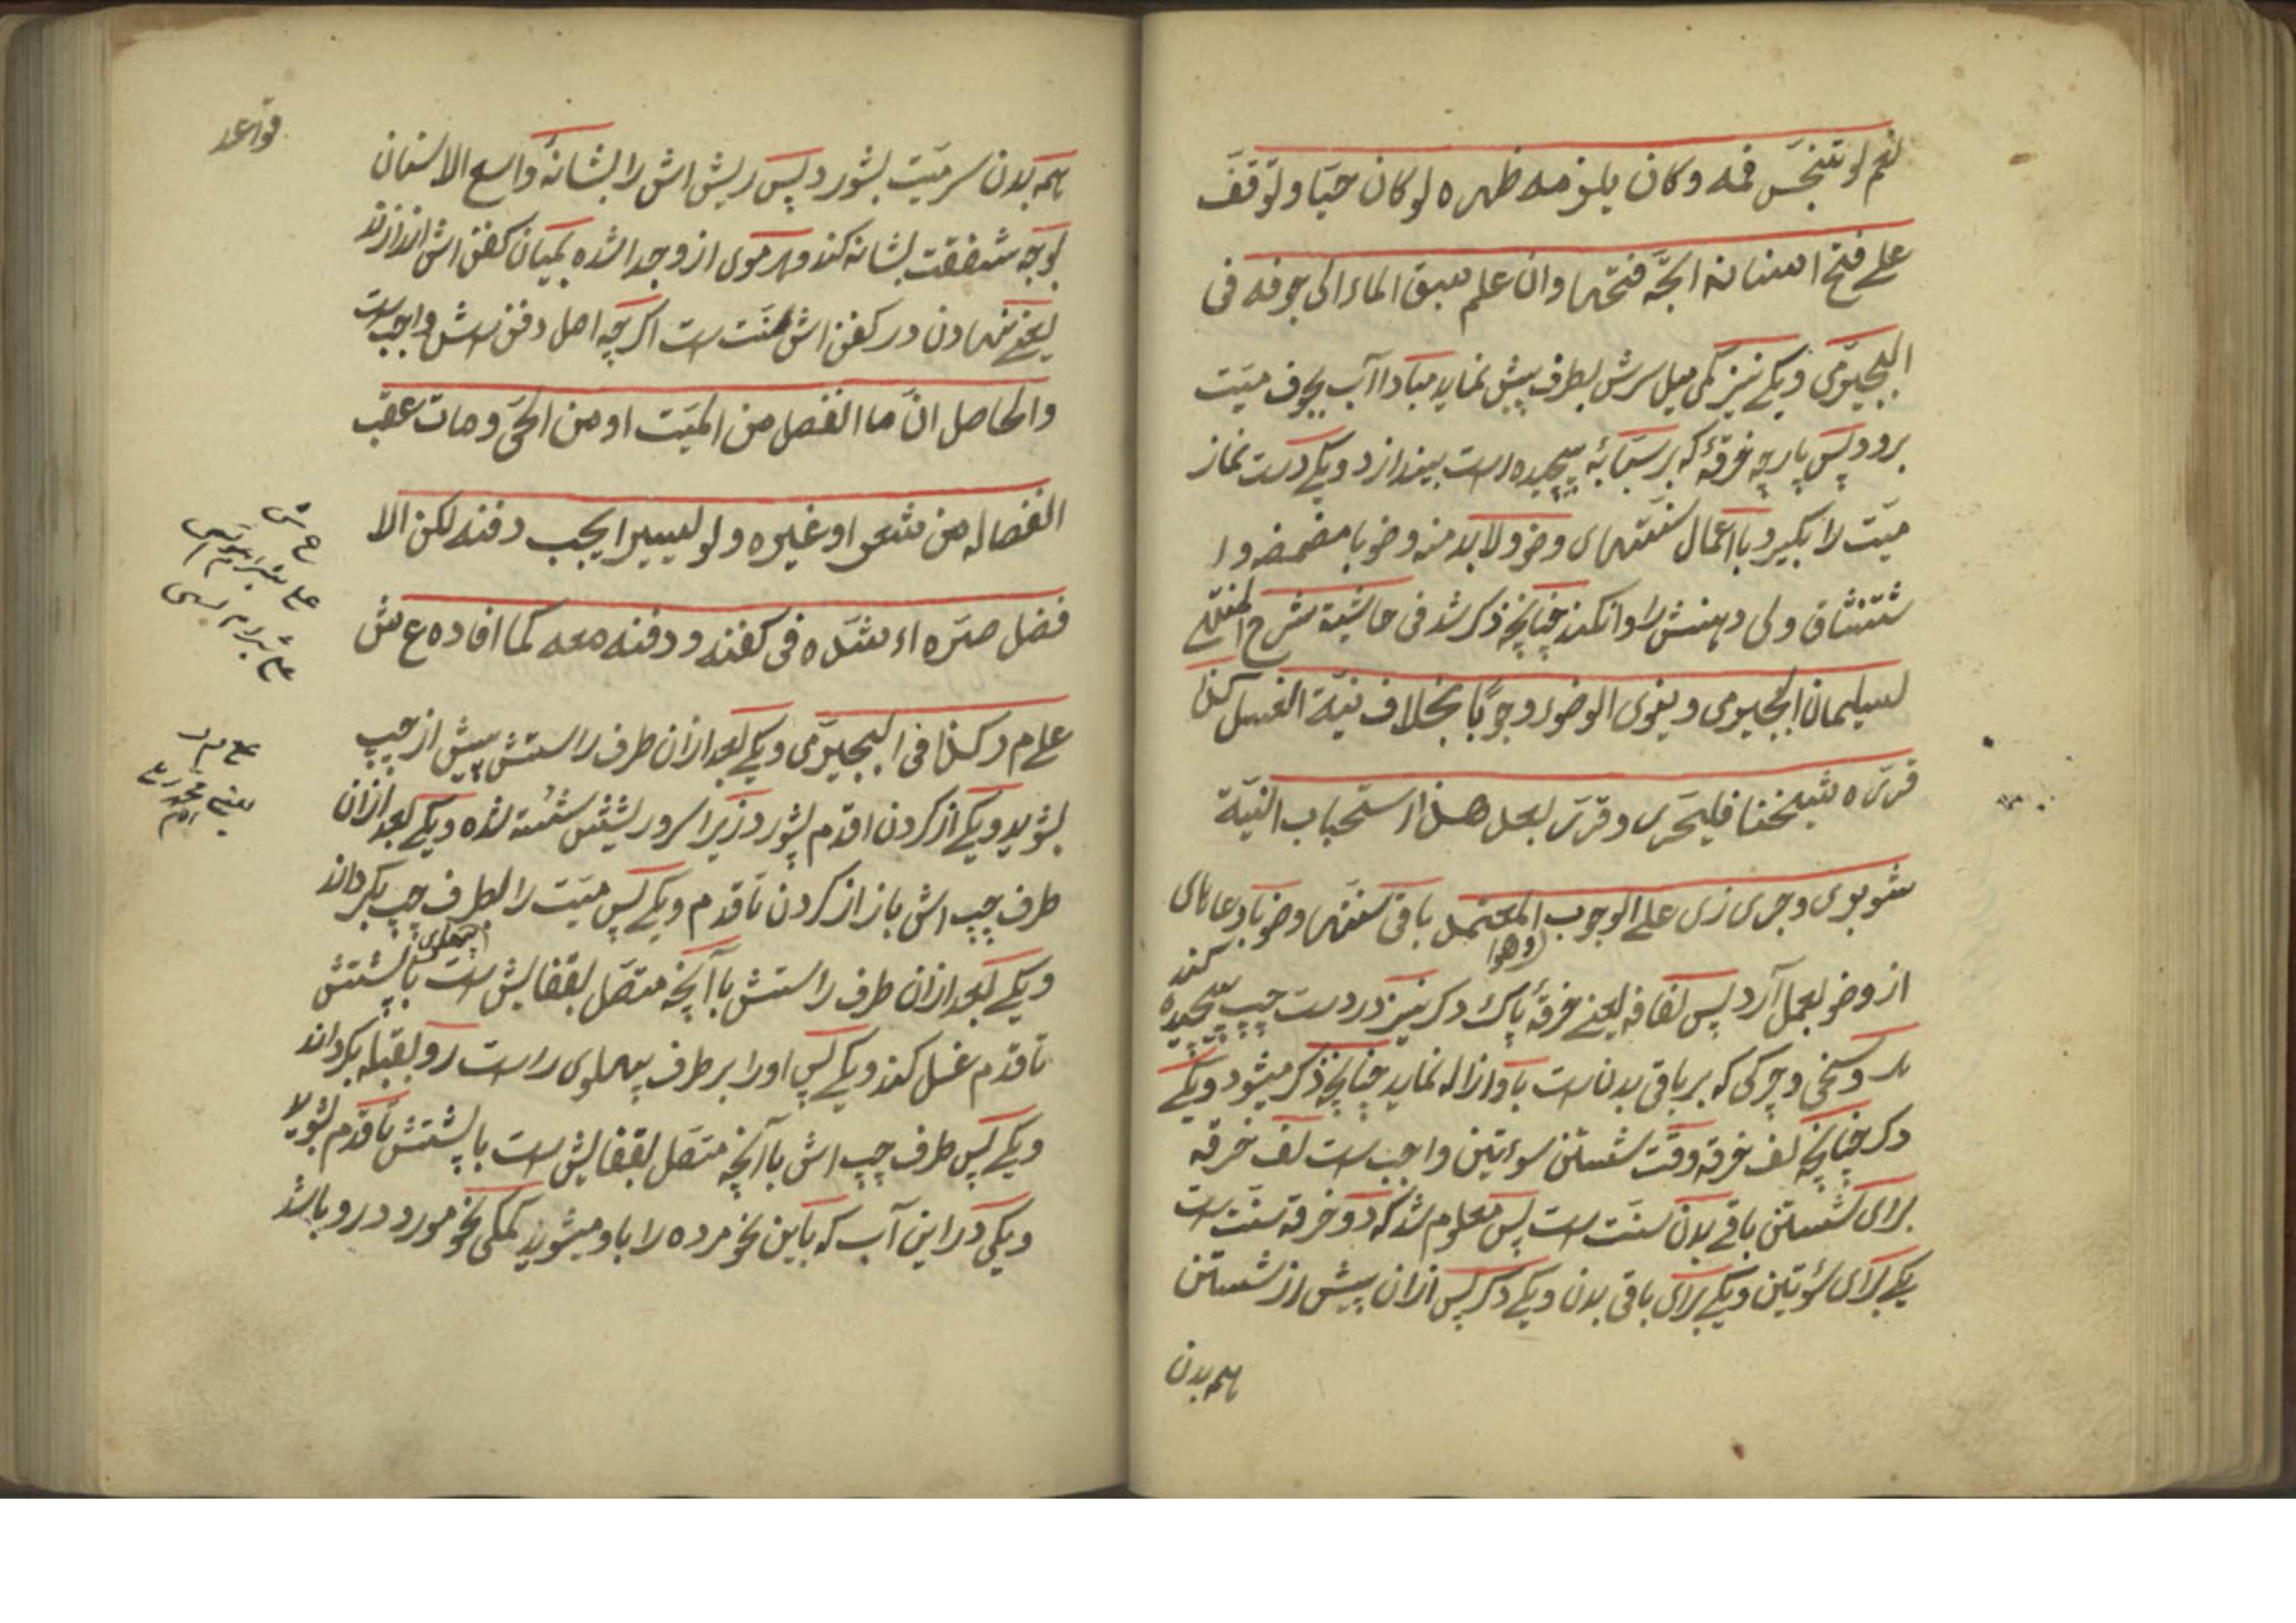 نعم لو تنجّس فمه وكان يلزمه طهره لو كان حيّا وتوقّف
على فتح اسنانه اتجه فتحها وان علم سبق الماء الى جوفه فى
البجيرمى ويكے نيز كمى ميل سرش بطرف پيش نمايد مبادا آب بجوف ميّت
برود پس پارچه خرقۀ كه بر سبّابۀ پيچيده است بيندازد ويكے درست نماز
ميّت را بگيرد با اعمال سنّتهاى وضو ولابد منه وضو با مضمضه وا
ستنشاق ولى دهنش را وا نكند چنانچه ذكر شد فى حاشية شرح المنهج
لسليمان البجيرمى وينوى الوضوء وجوبًا بخلاف نيّة الغسل كذا
قرّره شيخنا فليحرى وقرّر بعد هذا استحباب النيّة
شوبرى وجرى زى على الوجوب المعتمد باقى سنّتها وضو با دعاهاى
(وهوا
كند
از وضو بعمل آرد پس لفافه يعنے خرقۀ پاك دكر نيز در دست چپ پيچيده
وسخى وچركى كه بر باقى بدن ست باو ازاله نمايد چنانچه ذكر ميشود ويكے
دكر چنانچه لف خرقه وقت شستن سوءتين واجب ست لف خرقه
براى شستن باقے بدن سنّت ست پس معلوم شد كه دو خرقه سنّت ست
يكے براى سوءتين ويكے براى باقى بدن ويكے دكر پس ازان پيش از شستن
همه بدن
قواعد
همه بدن سر ميّت بشورد پس ريش اش را بشانۀ واسع الاسنان
بوجه شفقت بشانه كند وهر موى ازو جدا شده بميان كفن اش اندازند
يعنے نهادن در كفن اش سنّت ست اكرچه اصل دفن ش واجب ست
والحاصل انّ ما انفصل من الميّت او من الحىّ ومات عقب
انفصاله من شعر او غيره ولو يسيرا يجب دفنه لكن الا
فضل صرّه اء شدّه فى كفنه ودفنه معه كما افاده ع ش
ع ش
على شبراملسى
على شبراملسى
على م ر كذا فى البجيرمى ويكے بعد ازان طرف راستش پيش از چپ
على م ر
يعنے محمد رملى
بشويد ويكے از كردن اقدم بشورد زيرا سر وريشش شسته شده ويكے بعد ازان
طرف چپ اش باز از كردن تا قدم ويكے پس ميّت را بطرف چپ بكرداند
پهلوى
ويكے بعد ازان طرف راستش با آنچه متصّل بقفايش ست با پشتش
تا قدم غسل كند ويكے پس او را بر طرف پهلوى راست رو بقبله بكرداند
ويكے پس طرف چپ اش با آنچه متصّل بقفايش ست با پشتش تا قدم بشويد
ويكى در اين آب كه باين نحو مرده را باو ميشويند كمكى نحو مورد درو باشد